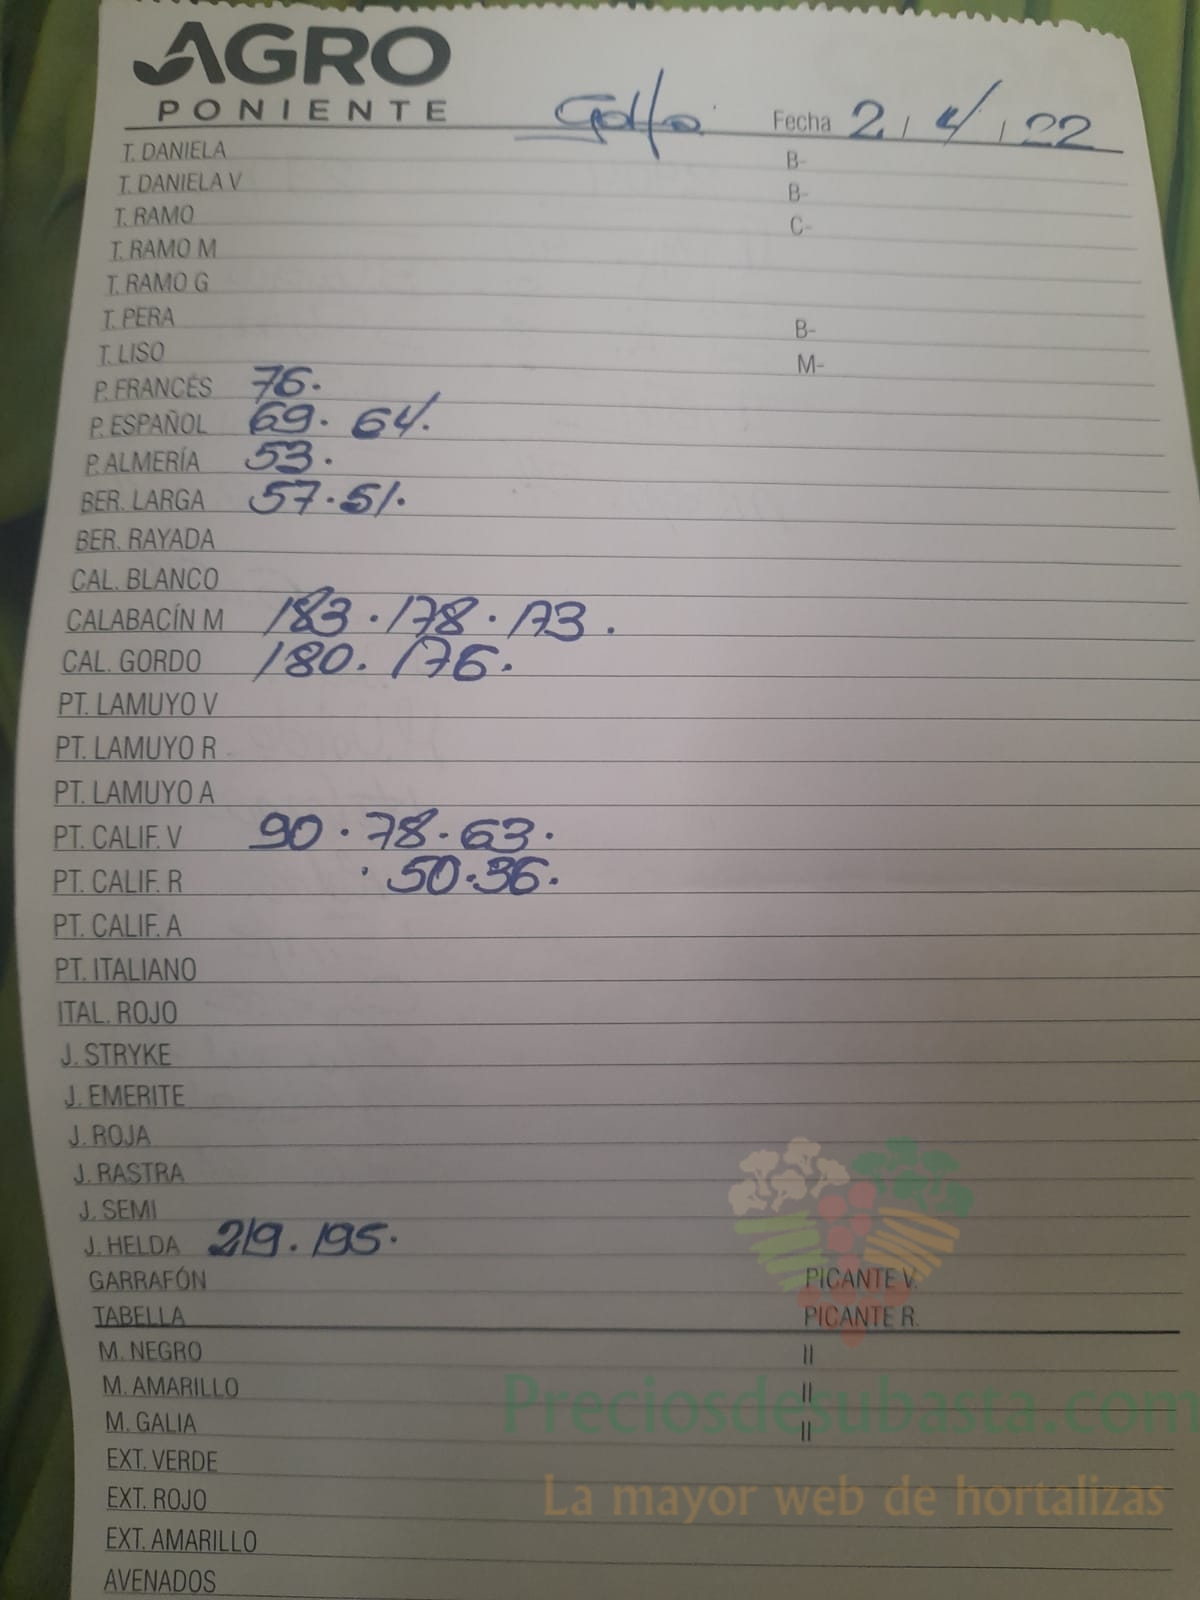 AGRO
PONIENTE
Golfo Fecha 2 / 4 / 22
T. DANIELA B-
T. DANIELA V B-
T. RAMO C-
T. RAMO M
T. RAMO G
T. PERA B-
T. LISO M-
P. FRANCÉS 76.
P. ESPAÑOL 69. 64.
P. ALMERÍA 53.
BER. LARGA 57. 51.
BER. RAYADA
CAL. BLANCO
CALABACÍN M 183. 178. 173.
CAL. GORDO 180. 176.
PT. LAMUYO V
PT. LAMUYO R
PT. LAMUYO A
PT. CALIF. V 90. 78. 63.
PT. CALIF. R . 50. 36.
PT. CALIF. A
PT. ITALIANO
ITAL. ROJO
J. STRYKE
J. EMERITE
J. ROJA
J. RASTRA
J. SEMI
J. HELDA 219. 195.
GARRAFÓN PICANTE V.
TABELLA PICANTE R.
M. NEGRO II
M. AMARILLO II
M. GALIA II
EXT. VERDE
EXT. ROJO
EXT. AMARILLO
AVENADOS
Preciosdesubasta.com
La mayor web de hortalizas